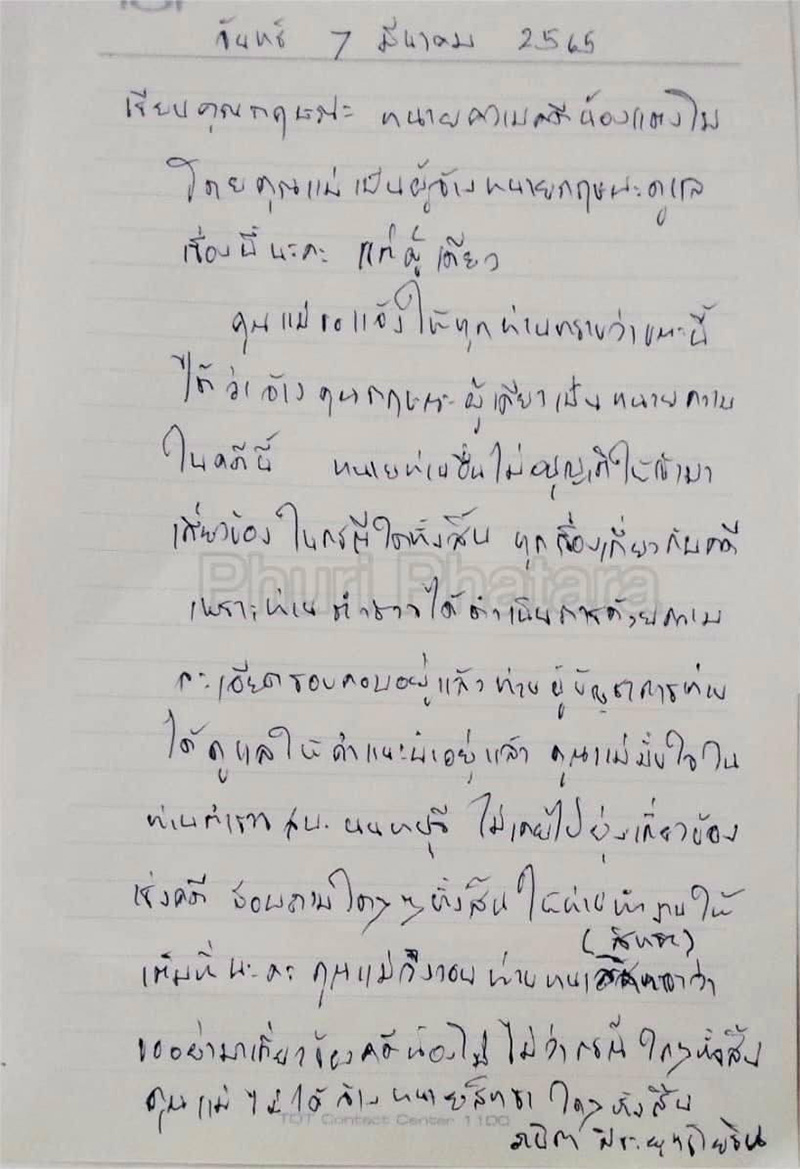 จันทร์ 7 มีนาคม 2565
เรียนคุณกฤษณะ ทนายความคดีน้องแตงโม
โดยคุณแม่เป็นผู้จ้างทนายกฤษณะดูแล
เรื่องนี้นะคะ แต่ผู้เดียว
คุณแม่ขอแจ้งให้ทุกท่านทราบว่าขณะนี้
ได้ว่าจ้างคุณกฤษณะผู้เดียวเป็นทนายความ
ในคดีนี้ ทนายท่านอื่นไม่อนุญาติให้เข้ามา
เกี่ยวข้องในกรณีใดทั้งสิ้น ทุกเรื่องเกี่ยวกับคดี
Phuri Phatara
เพราะท่านตำรวจได้ดำเนินการด้วยความ
ละเอียดรอบคอบอยู่แล้ว ท่านผู้บัญชาการท่าน
ได้ดูแลให้คำแนะนำอยู่แล้ว คุณแม่มั่นใจใน
ท่านตำรวจ สน. นนทบุรี ไม่เคยไปยุ่งเกี่ยวข้อง
เรื่องคดี สอบถามใดๆๆทั้งสิ้น ให้ท่านทำงานให้
(สิทรา)
เต็มที่นะคะ คุณแม่จึงวอนท่านทนายว่า
ขออย่ามาเกี่ยวข้องคดีน้องโม ไม่ว่ากรณีใดๆทั้งสิ้น
คุณแม่ไม่ได้จ้างทนายสิทรา ใดๆทั้งสิ้น
TOT Contact Center 1100
ภนิดา ศิระยุทธโยธิน